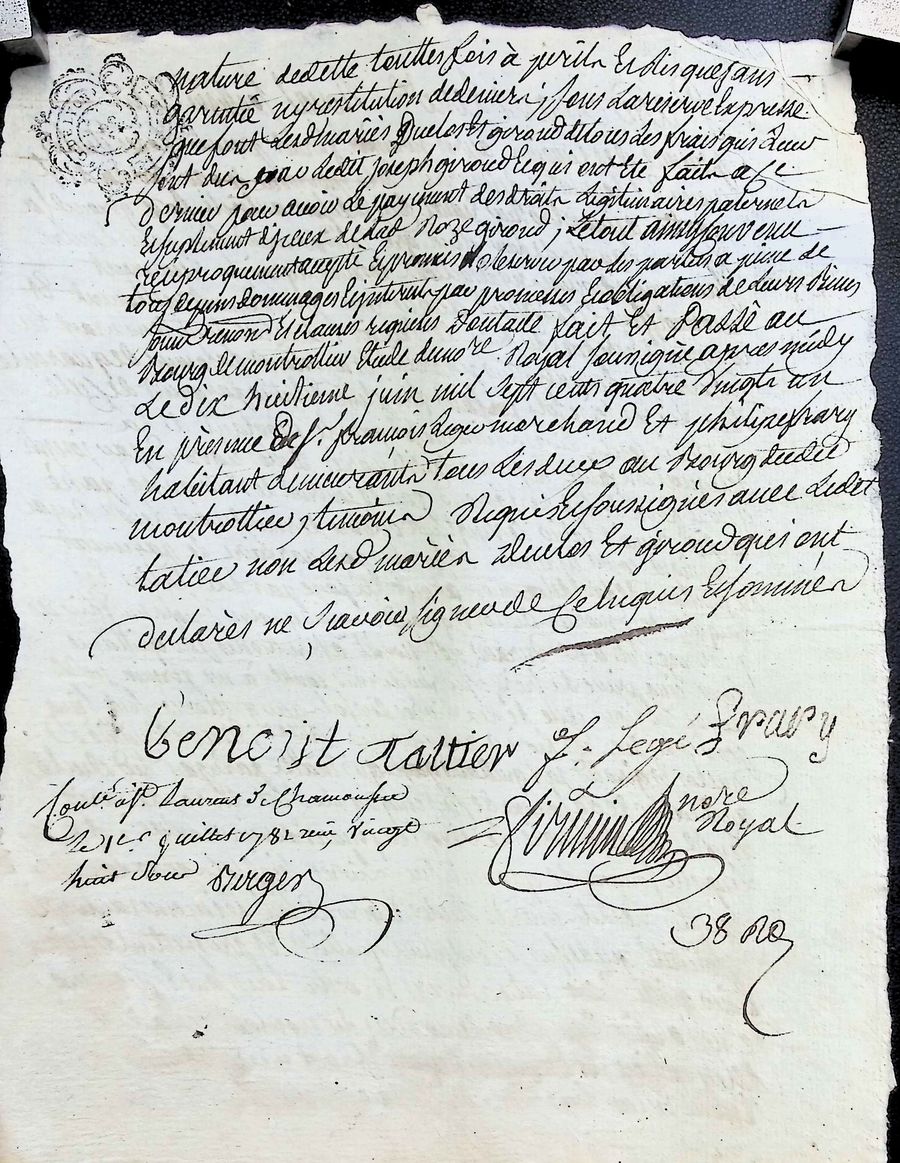 nature de dette touttes fois à perils Et Risques sans
garantie ny restitution de deniers; sous la reserve Expresse
que font Lesd mariés Duclos Et giroud de tous Les frais qui Leur
sont dus par ledit joseph giroud Et qui ont Eté faits a ce
dernier pour avoir Le payement des droits Legitimaires paternels
Et suplement d'iceux de lad Roze giroud; Le tout ainsy convenu
reciproquement accepté Et promis observer par les parties a peine de
tous depens domages Et interets par promesses Et obligations de Leurs Biens
soumi renon Et clauses requises Dont acte fait Et Passé au
Bourg de montrottier Etude du nore Royal soussigné apres midy
Le dix huitieme juin mil sept cents quatre vingts un
En presence de sr. françois Legé marchand Et philipe frary
habitant demeurants tous Les deux au Bourg dudit
montrottier, temoins Requis Et soussignés avec Ledit
tatier non Lesd mariés Duclos Et giroud qui ont
declarés ne sçavoir signer de Ce Enquis Et sommés
Benoist Tattier f. Legé frary
Conlé à St. Laurent De Chamousset
Le 1er juillet 1781 reçu, vingt
huit sous Berger
nore
Royal
38